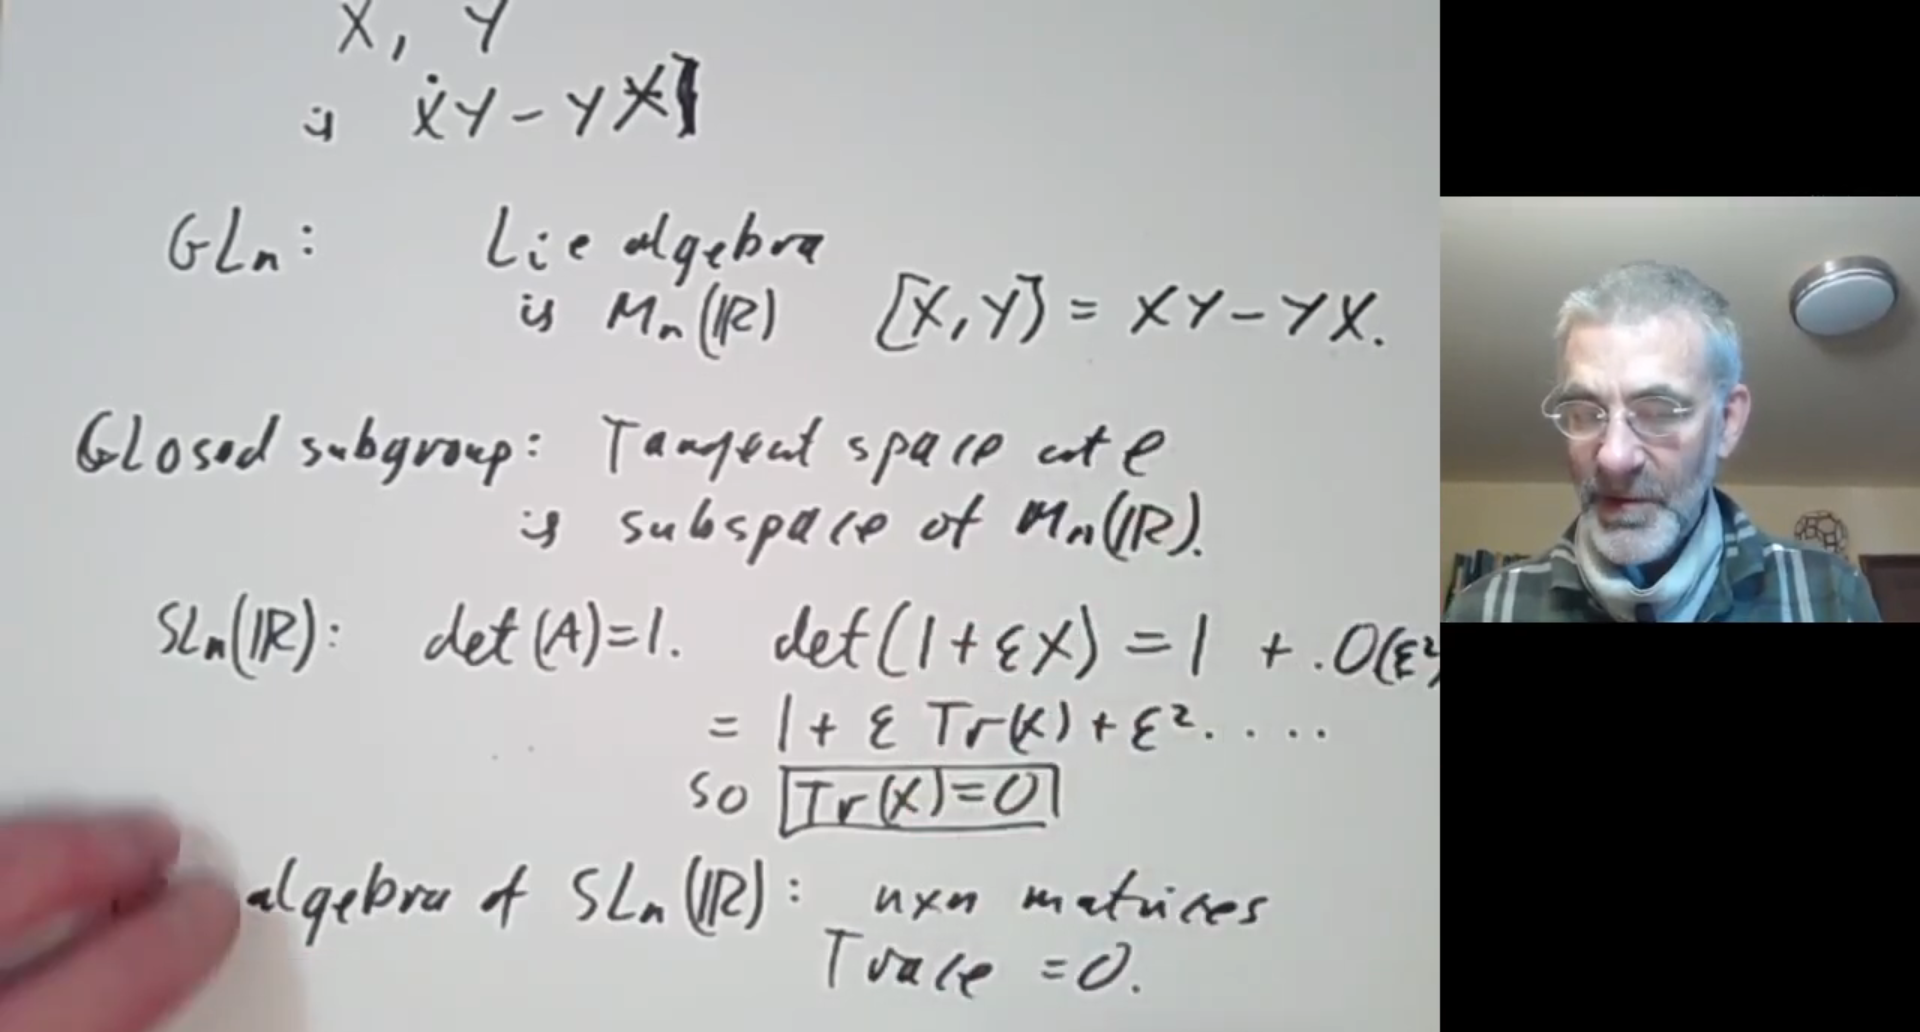 X, Y
is XY - YX
GLn: Lie algebra
is Mn(ℝ) [X, Y] = XY - YX.
Closed subgroup: Tangent space at e
is subspace of Mn(ℝ).
SLn(ℝ): det(A)=1. det(1+εX) = 1 + . O(ε²)
= 1 + ε Tr(X) + ε². . . .
so Tr(X)=0
algebra of SLn(ℝ): nxn matrices
Trace = 0.